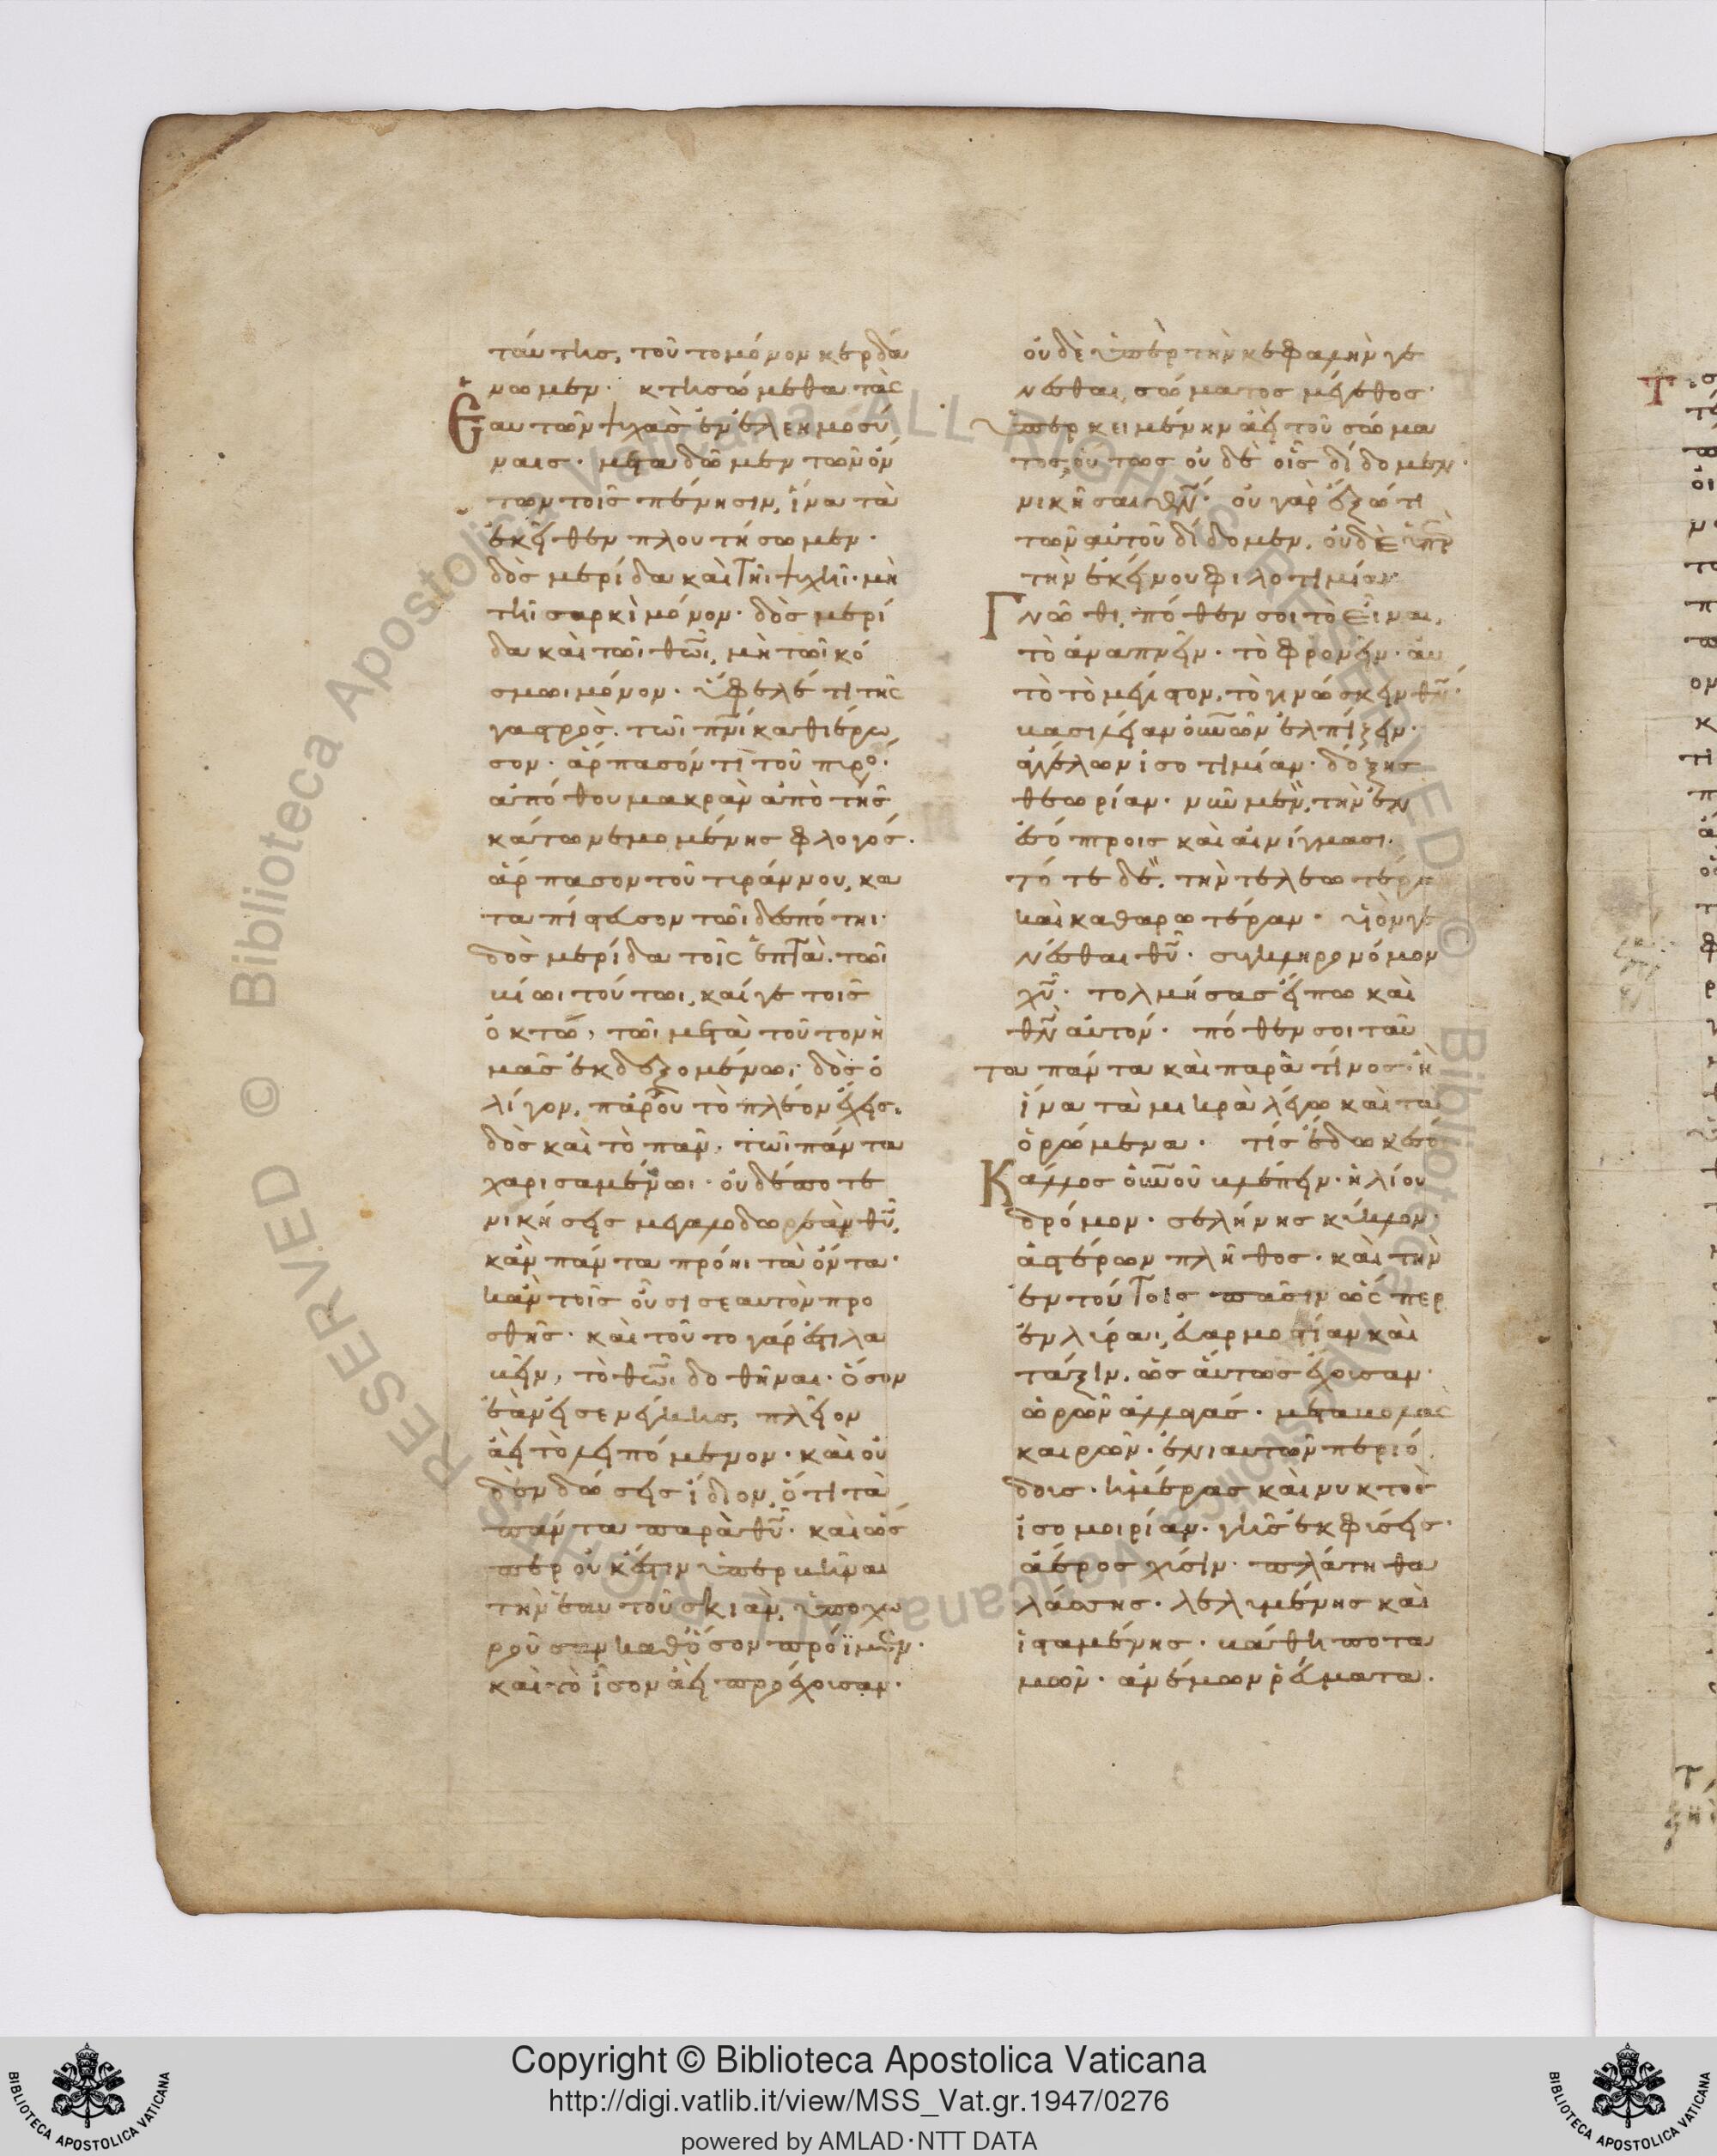 ταύτης, τοῦτο μόνον κερδά
νωμεν· κτησώμεθα τὰς
ἑαυτῶν ψυχὰς ἐν ἐλεημοσύ
ναις· μεταδῶμεν τῶν ὄν
των τοῖς πένησιν, ἵνα τὰ
ἐκεῖθεν πλουτήσωμεν·
δὸς μερίδα καὶ τῆι ψυχῆι· μὴ
τῆι σαρκὶ μόνον· δὸς μερί
δα καὶ τῶι θω̅ι, μὴ τῶι κό
σμωι μόνον· ὕφελέ τι τῆς
γαστρὸς· τῶι πνι̅ καθιέρω
σον· ἅρπασόν τι τοῦ πυρό·
ἀπόθου μακρὰν ἀπὸ τῆς
κάτω νεμομένης φλογός·
ἅρπασον τοῦ τυράννου, κα
ταπίστευσον τῶι δεσπότηι·
δὸς μερίδα τοῖς ἑπτὰ· τῶι
βίωι τούτωι, καί γε τοῖς
ὀκτώ, τῶι μετὰ τοῦτον ἡ
μᾶς ἐκδεξομένωι· δὸς ὀ
λίγον, παρ' οὗ τὸ πλέον ἔχεις·
δὸς καὶ τὸ πᾶν, τῶι πάντα
χαρισαμένωι· οὐδέποτε
νικήσεις μεγαλοδωρεὰν θυ̅,
κἂν πάντα πρόηι τὰ ὄντα·
κἂν τοῖς οὖσι σεαυτὸν προ
σθῆς· καὶ τοῦτο γάρ ἐστι λα
βεῖν, τὸ θω̅ι δοθῆναι· ὅσον
ἐὰν εἰσενέγκης, πλεῖον
ἀεὶ τὸ λειπόμενον· καὶ οὐ
δὲν δώσεις ἴδιον, ὅτι τὰ
πάντα παρὰ θυ̅· καὶ ὥς
περ οὐκ ἔστιν ὑπερβῆναι
τὴν ἑαυτοῦ σκιὰν, ὑποχω
ροῦσαν καθ' ὅσον πρόϊμεν·
καὶ τὸ ἴσον ἀεὶ προέχουσαν·
οὐδὲ ὑπὲρ τὴν κεφαλὴν γε
νέσθαι, σώματος μέγεθος·
ὑπερκειμένην ἀεὶ τοῦ σώμα
τος, οὕτως οὐδὲ οἷς δίδομεν·
νικῆσαι θν̅· οὐ γὰρ ἔξω τι
τῶν αὐτοῦ δίδομεν, οὐδὲ ὑπὲρ
τὴν ἐκείνου φιλοτιμίαν·
Γνῶθι, πόθεν σοι τὸ εἶναι,
τὸ ἀναπνεῖν· τὸ φρονεῖν· αὐ
τὸ τὸ μέγιστον, τὸ γινώσκειν θν̅·
βασιλείαν οὐνω̅ν ἐλπίζειν·
ἀγγέλων ἰσοτιμίαν· δόξης
θεωρίαν· νῦν μὲν, τὴν ἐν
ἐσόπτροις καὶ αἰνίγμασι·
τότε δὲ, τὴν τελεωτέραν
καὶ καθαρωτέραν· υἱὸν γε
νέσθαι θυ̅· συγκληρονόμον
χυ̅· τολμήσας εἴπω καὶ
θν̅ αὐτόν· πόθεν σοι ταῦ
τα πάντα καὶ παρὰ τίνος· ἢ
ἵνα τὰ μικρὰ λέγω καὶ τὰ
ὁρώμενα· τίς ἔδωκέ σοι
Κάλλος οὐνου̅ βλέπειν· ἡλίου
δρόμον· σελήνης κύκλον·
ἀστέρων πλῆθος· καὶ τὴν
ἐν τούτοις πᾶσιν ὥσπερ
ἐν λύραι, εὐαρμοστίαν καὶ
τάξιν, ὡσαύτως ἔχουσαν·
ὡρῶν ἀλλαγάς· μεταβολὰς
καιρῶν· ἐνιαυτῶν περιό
δους· ἡμέρας καὶ νυκτὸς
ἰσομοιρίαν· γῆς ἐκφύσεις·
ἀέρος χύσιν· πλάτη θα
λάσσης· λελυμένης καὶ
ἱσταμένης· βάθη ποτα
μῶν· ἀνέμων ῥεύματα·
Copyright © Biblioteca Apostolica Vaticana
http://digi.vatlib.it/view/MSS_Vat.gr.1947/0276
powered by AMLAD·NTT DATA